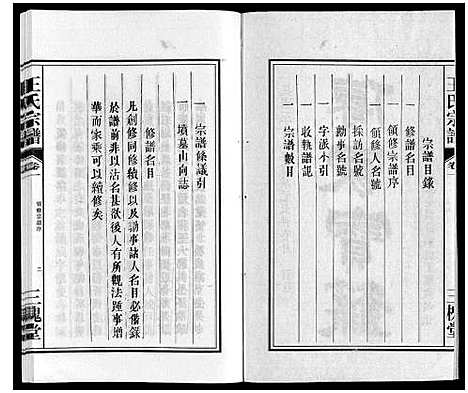 王氏宗譜
卷
三槐堂
宗譜目錄
一 領修宗譜序
一 領修人名號
一 採訪名號
一 勷事名號
一 字派小引
一 收執譜記
一 宗譜數目
一 宗譜條議引
一 墳墓山向誌
修譜名目
凡創修同修續修以及勷事諸人名目必備錄
於譜前非以沽名甚欲後人有所觀法踵事增
華而家乘可以續修矣
王氏宗譜
卷
領修宗譜序
二
三槐堂